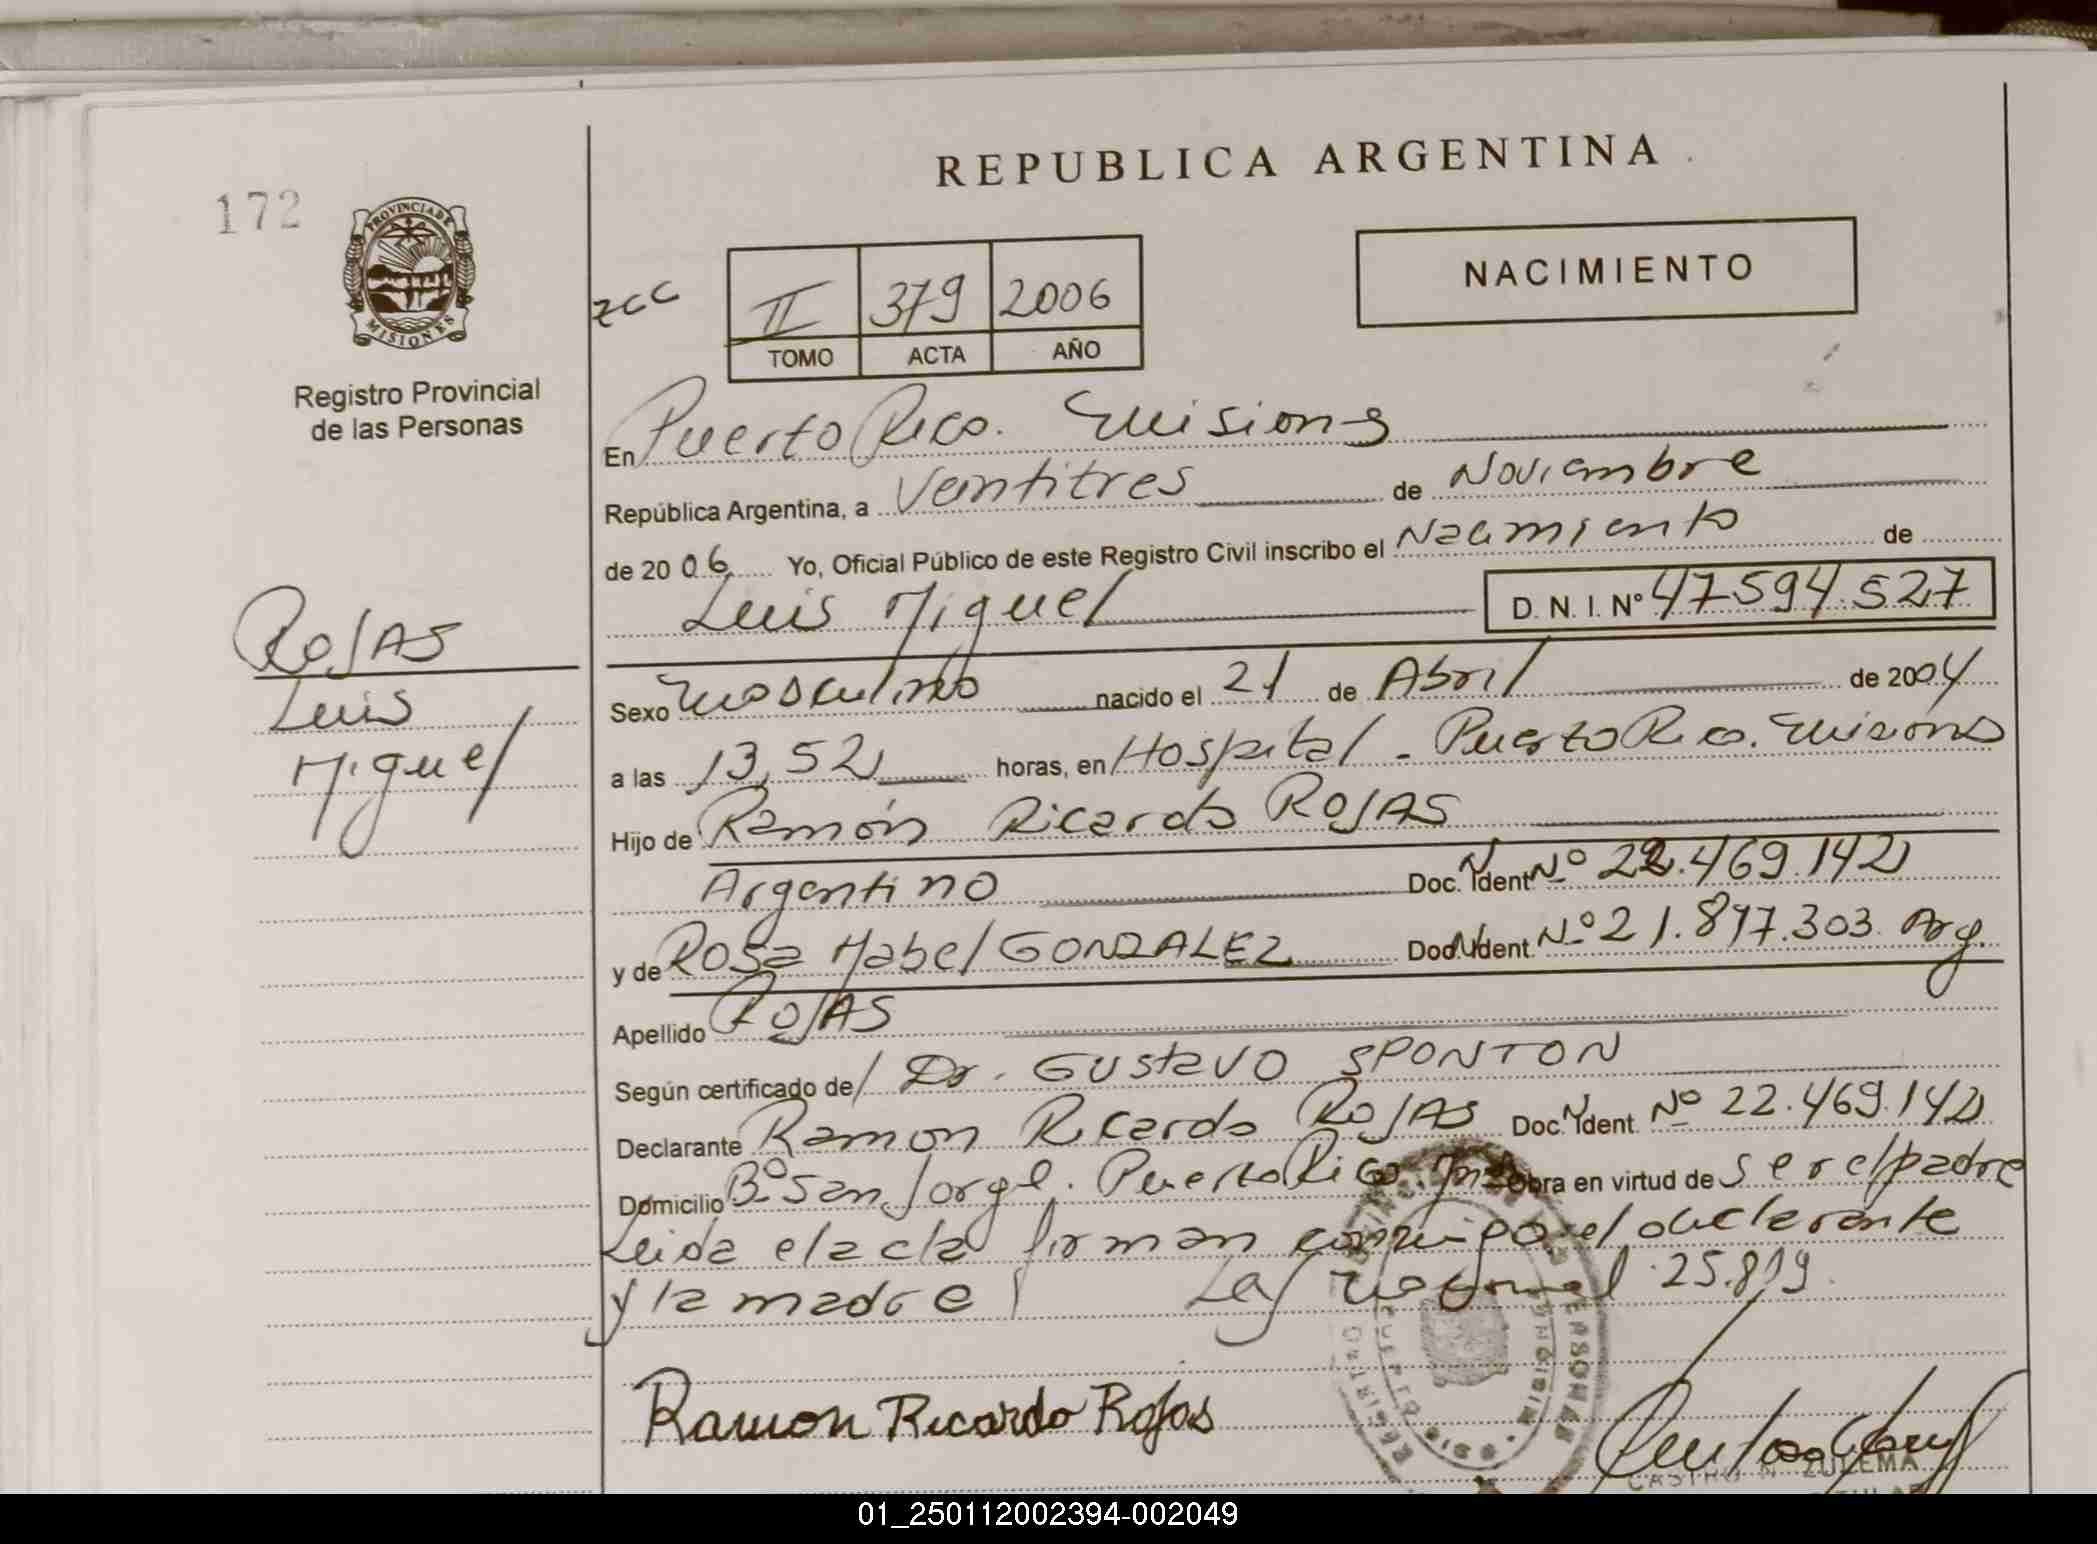 REPUBLICA ARGENTINA
172
PROVINCIA DE
MISIONES
Registro Provincial
de las Personas
NACIMIENTO
zcc
II 379 2006
TOMO ACTA AÑO
En Puerto Rico. Misiones
República Argentina, a Veintitres de Noviembre
de 2006 Yo, Oficial Público de este Registro Civil inscribo el Nacimiento de
Luis Miguel D. N. I. Nº 47.594.527
ROJAS
Luis
Miguel
Sexo Masculino nacido el 21 de Abril de 2004
a las 13,52 horas, en Hospital - Puerto Rico. Misiones
Hijo de Ramón Ricardo ROJAS
Argentino Doc. Ident Nº 22.469.142
y de Rosa Mabel GONZALEZ Doc. Ident. Nº 21.897.303. Arg.
Apellido ROJAS
Según certificado de Dr. Gustavo SPONTON
Declarante Ramon Ricardo ROJAS Doc. Ident. Nº 22.469.142
Domicilio Bº San Jorge. Puerto Rico. Obra en virtud de ser el padre
Leida el acta firman conmigo el declarante
y la madre Ley Nacional 25.819.
Ramon Ricardo Rojas
CASTRO N. ZULEMA
01_250112002394-002049